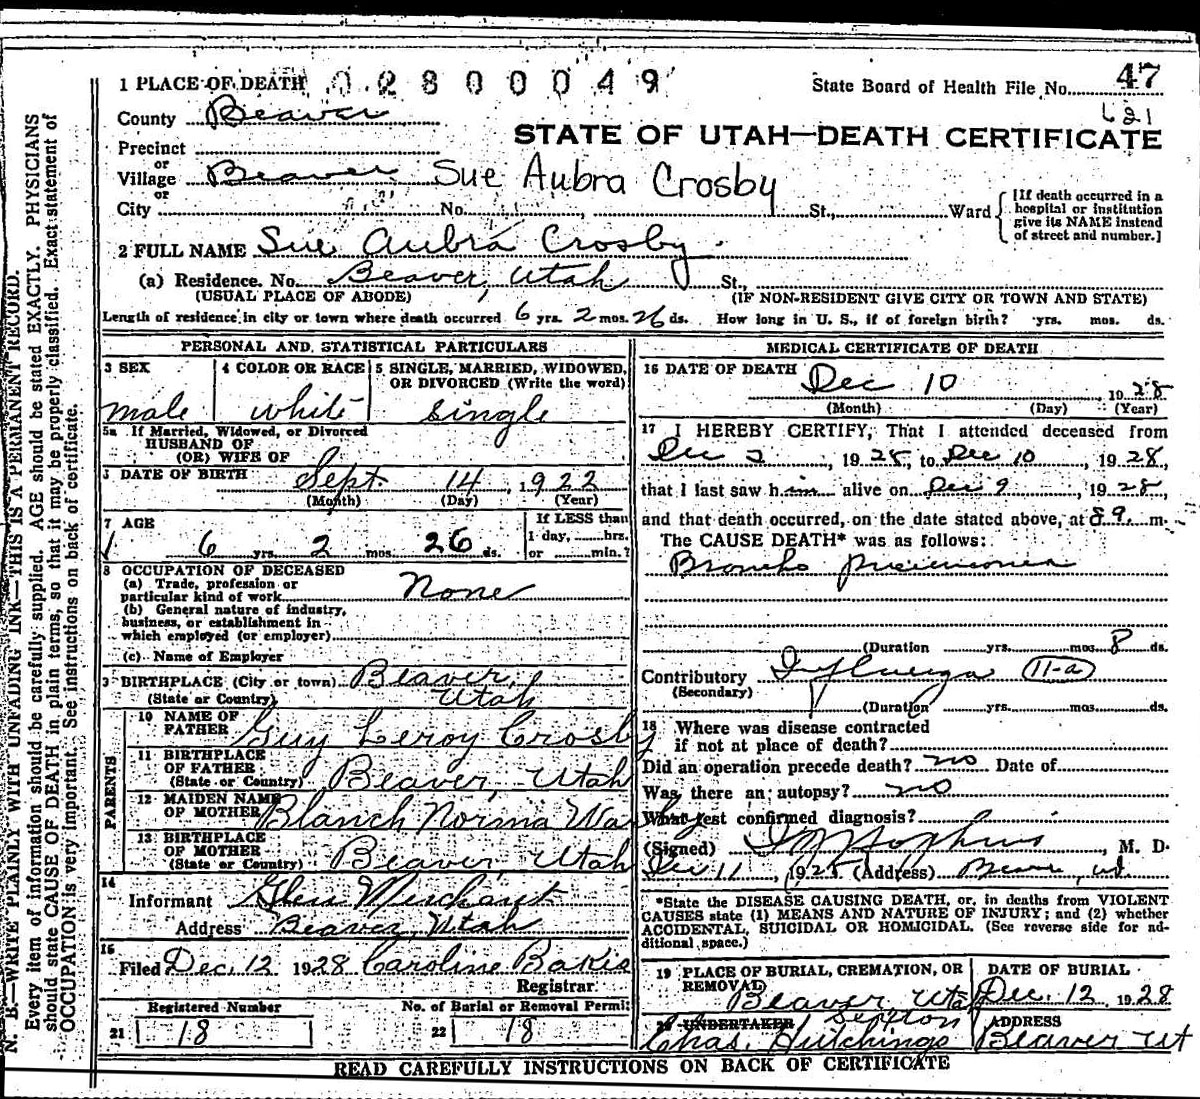 1 PLACE OF DEATH 02800049
State Board of Health File No. 47
621
County Beaver
STATE OF UTAH—DEATH CERTIFICATE
Precinct
or
Village Beaver Sue Aubra Crosby
or
City No. St., Ward
[If death occurred in a
hospital or institution
give its NAME instead
of street and number.]
2 FULL NAME Sue Aubra Crosby
(a) Residence. No. Beaver, Utah St.,
(USUAL PLACE OF ABODE) (IF NON-RESIDENT GIVE CITY OR TOWN AND STATE)
Length of residence in city or town where death occurred 6 yrs. 2 mos. 26 ds. How long in U. S., if of foreign birth? yrs. mos. ds.
PERSONAL AND STATISTICAL PARTICULARS
3 SEX
male
4 COLOR OR RACE
white
5 SINGLE, MARRIED, WIDOWED,
OR DIVORCED (Write the word)
single
5a If Married, Widowed, or Divorced
HUSBAND OF
(OR) WIFE OF
DATE OF BIRTH Sept. 14, 1922
(Month) (Day) (Year)
7 AGE
6 yrs. 2 mos. 26 ds.
If LESS than
1 day, hrs.
or min.?
8 OCCUPATION OF DECEASED
(a) Trade, profession or
particular kind of work None
(b) General nature of industry,
business, or establishment in
which employed (or employer)
(c) Name of Employer
9 BIRTHPLACE (City or town) Beaver,
(State or Country) Utah
PARENTS
10 NAME OF
FATHER Guy Leroy Crosby
11 BIRTHPLACE
OF FATHER
(State or Country) Beaver, Utah
12 MAIDEN NAME
OF MOTHER Blanch Norma
13 BIRTHPLACE
OF MOTHER
(State or Country) Beaver, Utah
14
Informant Glen Merchant
Address Beaver, Utah
15
Filed Dec. 12 1928 Caroline Bakis
Registrar.
Registered Number No. of Burial or Removal Permit
21 18 22 18
MEDICAL CERTIFICATE OF DEATH
16 DATE OF DEATH Dec 10, 1928
(Month) (Day) (Year)
17 I HEREBY CERTIFY, That I attended deceased from
Dec 2, 1928, to Dec 10, 1928,
that I last saw him alive on Dec 9, 1928,
and that death occurred, on the date stated above, at m.
The CAUSE DEATH* was as follows:
Broncho pneumonia
(Duration yrs. mos. 8 ds.
Contributory Influenza 11-a
(Secondary)
(Duration yrs. mos. ds.
18 Where was disease contracted
if not at place of death?
Did an operation precede death? no Date of
Was there an autopsy? no
What test confirmed diagnosis?
(Signed) M. D.
Dec 11, 1928 (Address) Beaver, ut
*State the DISEASE CAUSING DEATH, or, in deaths from VIOLENT
CAUSES state (1) MEANS AND NATURE OF INJURY; and (2) whether
ACCIDENTAL, SUICIDAL OR HOMICIDAL. (See reverse side for ad-
ditional space.)
19 PLACE OF BURIAL, CREMATION, OR
REMOVAL
Beaver, Utah
DATE OF BURIAL
Dec. 12, 1928
20 UNDERTAKER Sexton
Chas. Hutchings
ADDRESS
Beaver Ut
READ CAREFULLY INSTRUCTIONS ON BACK OF CERTIFICATE
N. B.—WRITE PLAINLY WITH UNFADING INK—THIS IS A PERMANENT RECORD.
Every item of information should be carefully supplied. AGE should be stated EXACTLY. PHYSICIANS
should state CAUSE OF DEATH in plain terms, so that it may be properly classified. Exact statement of
OCCUPATION is very important. See instructions on back of certificate.